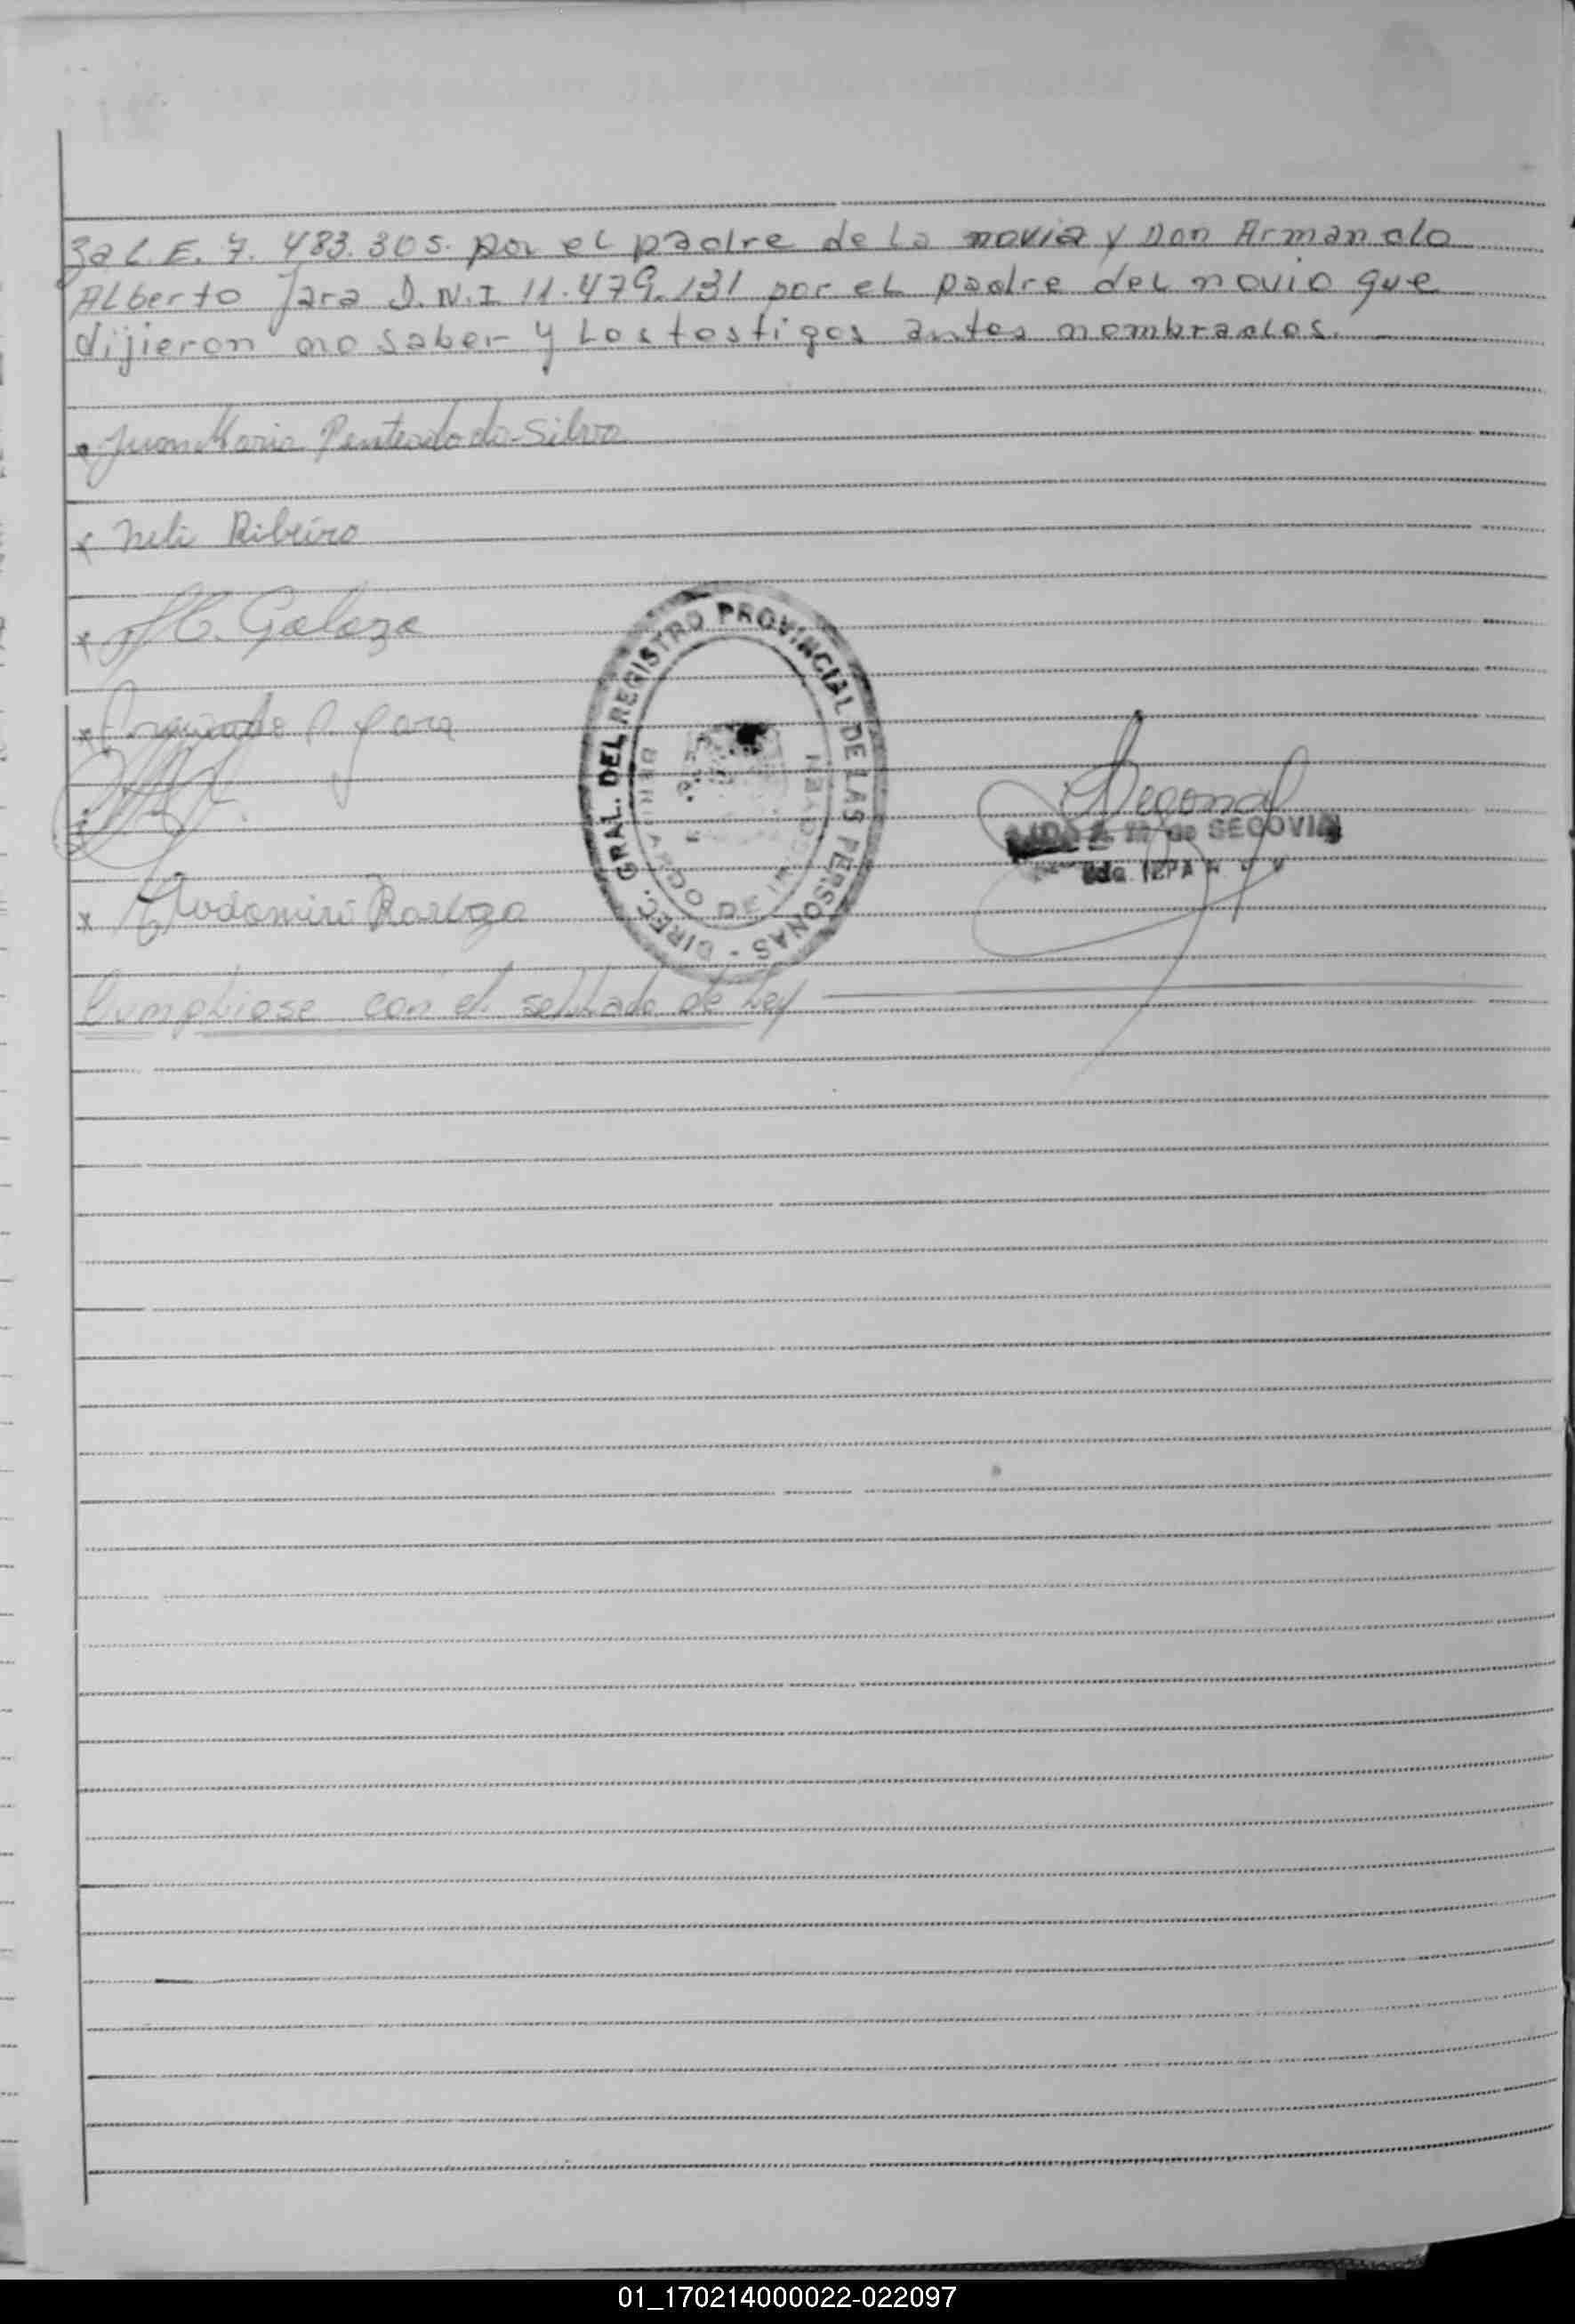 za L.E. 7.483.305. por el padre de la novia y Don Armando
Alberto Jara D.N.I 11.479.131 por el padre del novio que
dijieron no saber y Los testigos antes nombrados.
Juan Maria Penteado da Silva
x Neli Ribeiro
x Galaza
x Armando A. Jara
x Clodomiro
Cumpliose con el sellado de Ley
DIREC. GRAL. DEL REGISTRO PROVINCIAL DE LAS PERSONAS -
BERNARDO DE IRIGOYEN
de SEGOVIA
01_170214000022-022097